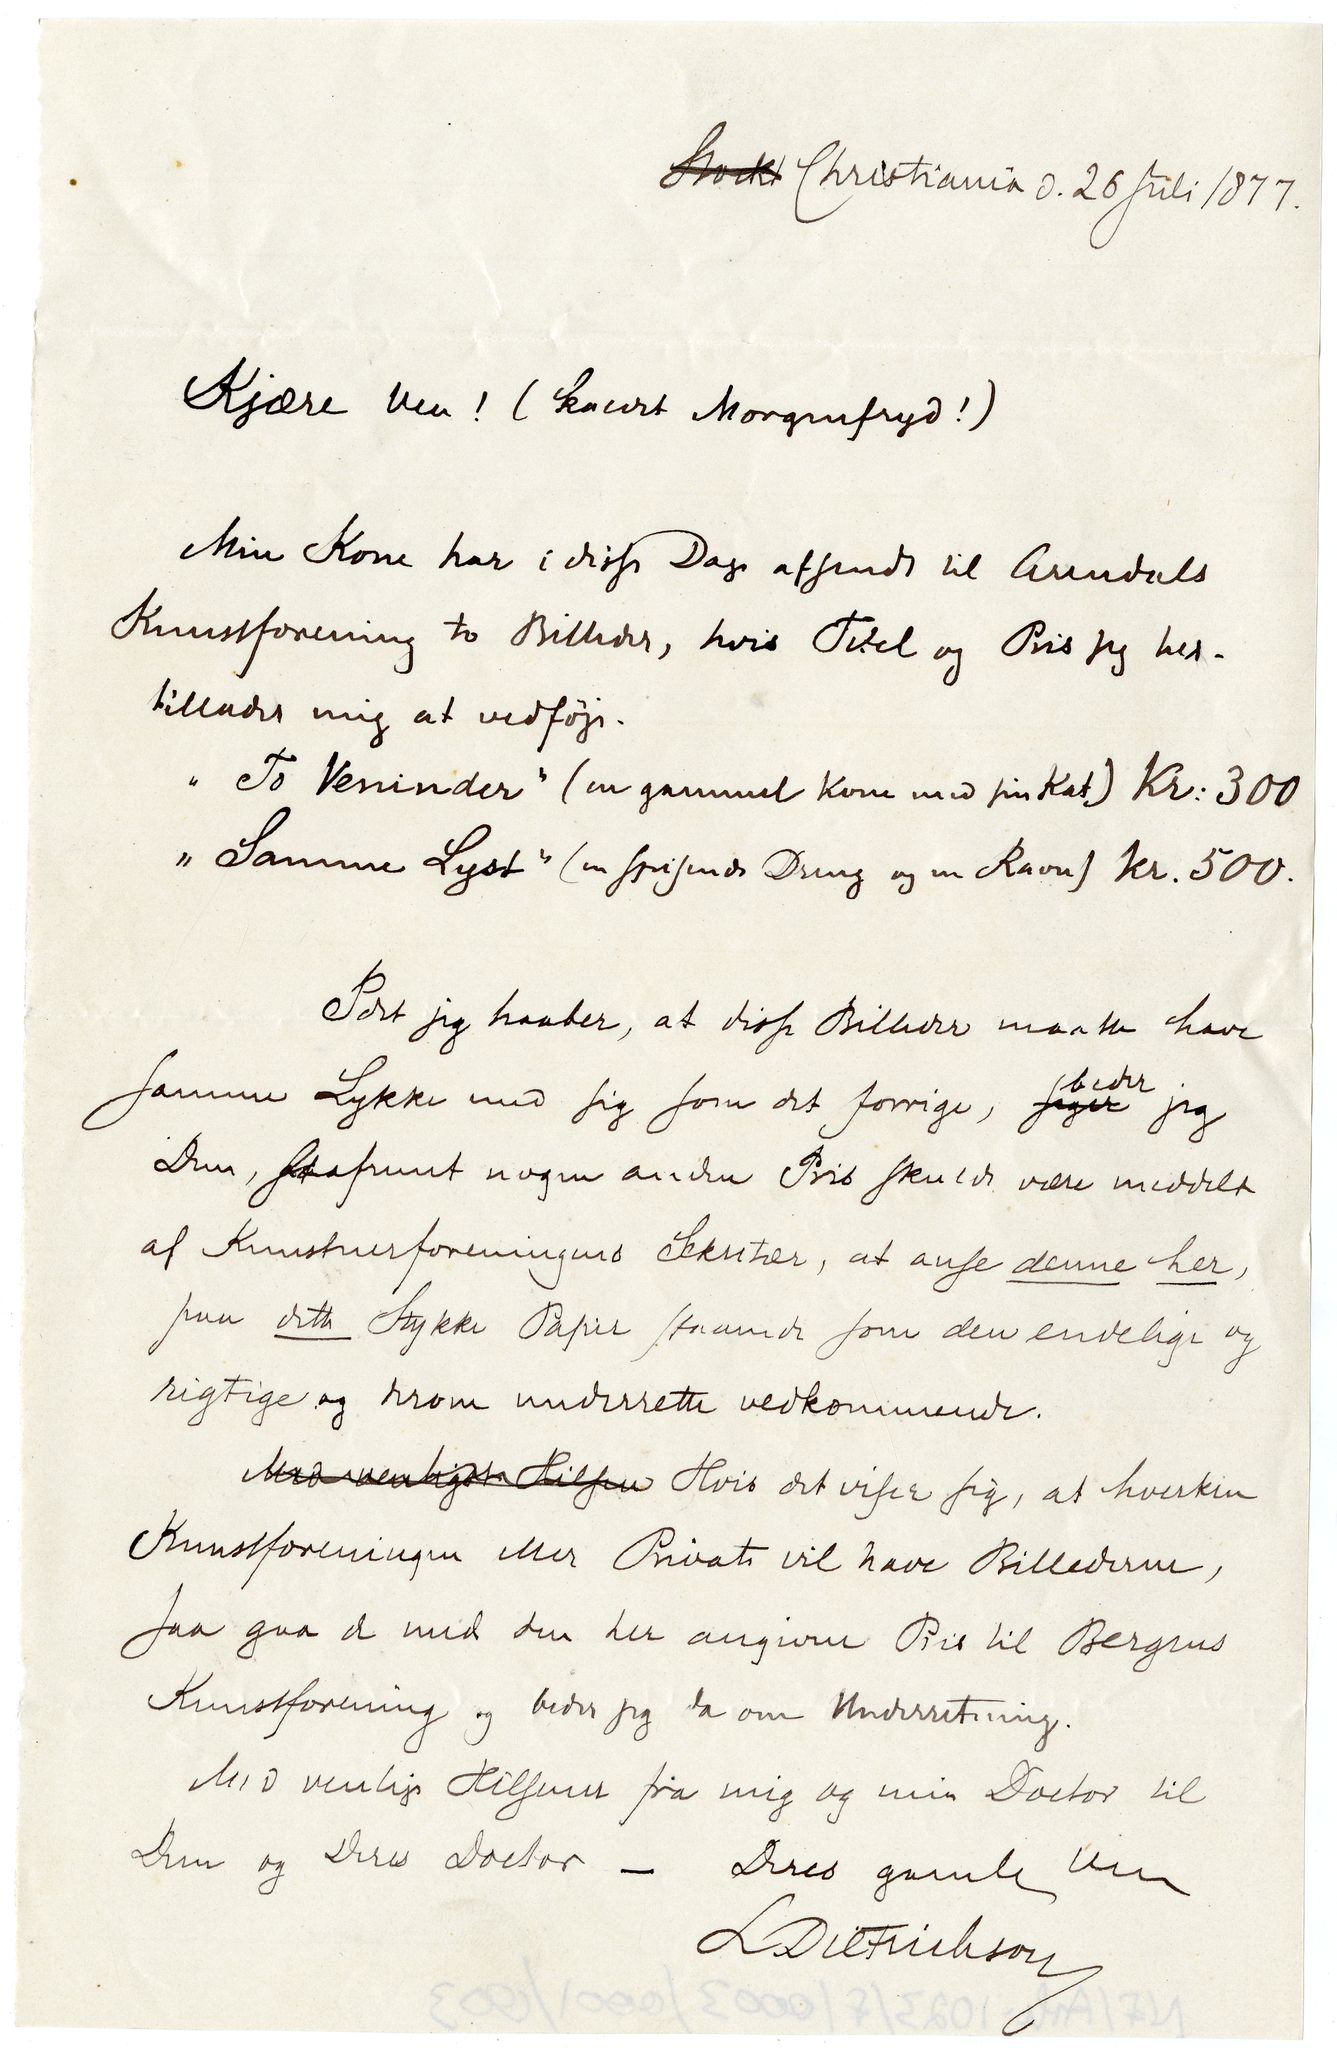 Stockh Christiania d. 26 Juli 1877.
Kjære Ven! ( Morgenfryd!)
Min Kone har i disse Dage afsendt til Arendals
Kunstforening to Billeder, hvis Titel og Pris jeg her-
tillader mig at vedføje.
" To Veninder" (en gammel Kone med sin Kat) Kr: 300
" Samme Lyst" (en spisende Dreng og en Ravn) Kr. 500.
Idet jeg haaber, at disse Billeder maatte have
samme Lykke med sig som det forrige, beder jeg
Dem, saafremt nogen anden Pris skulde være meddelt
af Kunstnerforeningens Sekretær, at anse denne her,
paa dette Stykke Papir staaende som den endelige og
rigtige og derom underrette vedkommende.
Med venligste Hilsen Hvis det viser sig, at hverken
Kunstforeningen eller Private vil have Billederne,
saa gaa de med den her angivne Pris til Bergens
Kunstforening og beder jeg da om Underretning.
Med venlige Hilsener fra mig og min Doctor til
Dem og Deres Doctor — Deres gamle Ven
LDietrichson